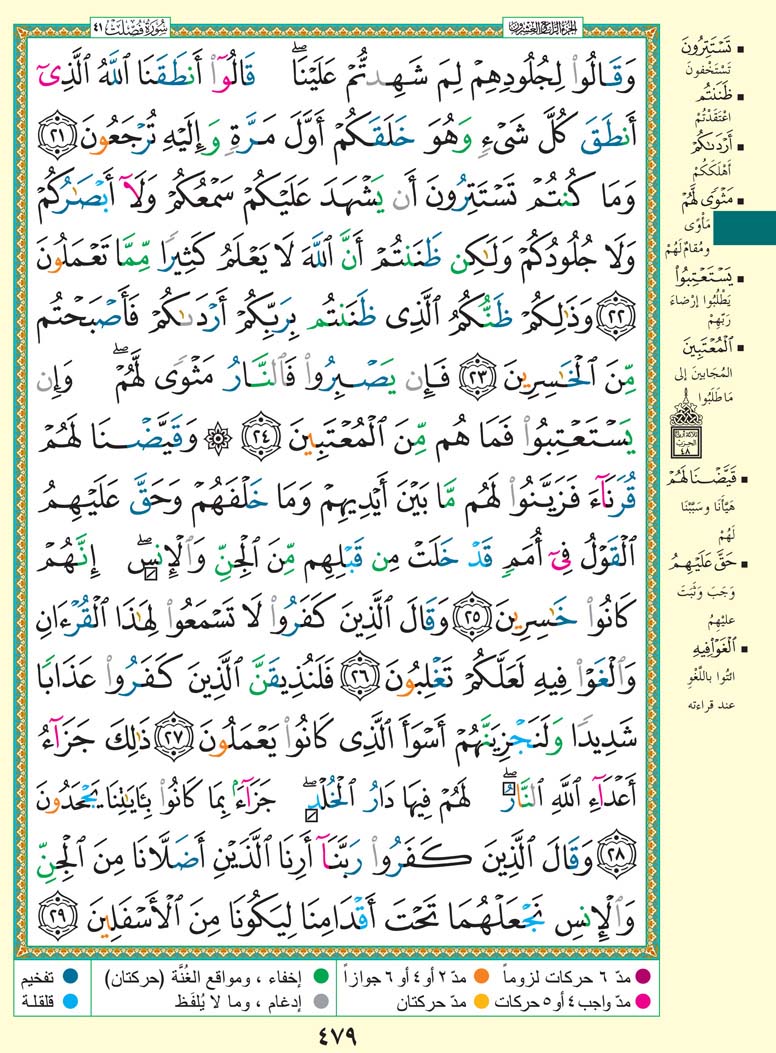 سُورَةُ فُصِّلَتْ ٤١
الجُزْءُ الرَّابِعُ وَالعِشْرُونَ
وَقَالُوا۟ لِجُلُودِهِمْ لِمَ شَهِدتُّمْ عَلَيْنَا ۖ قَالُوٓا۟ أَنطَقَنَا ٱللَّهُ ٱلَّذِىٓ
أَنطَقَ كُلَّ شَىْءٍ وَهُوَ خَلَقَكُمْ أَوَّلَ مَرَّةٍ وَإِلَيْهِ تُرْجَعُونَ ٢١
وَمَا كُنتُمْ تَسْتَتِرُونَ أَن يَشْهَدَ عَلَيْكُمْ سَمْعُكُمْ وَلَآ أَبْصَٰرُكُمْ
وَلَا جُلُودُكُمْ وَلَٰكِن ظَنَنتُمْ أَنَّ ٱللَّهَ لَا يَعْلَمُ كَثِيرًا مِّمَّا تَعْمَلُونَ
٢٢ وَذَٰلِكُمْ ظَنُّكُمُ ٱلَّذِى ظَنَنتُم بِرَبِّكُمْ أَرْدَىٰكُمْ فَأَصْبَحْتُم
مِّنَ ٱلْخَٰسِرِينَ ٢٣ فَإِن يَصْبِرُوا۟ فَٱلنَّارُ مَثْوًى لَّهُمْ ۖ وَإِن
يَسْتَعْتِبُوا۟ فَمَا هُم مِّنَ ٱلْمُعْتَبِينَ ٢٤ ۞ وَقَيَّضْنَا لَهُمْ
قُرَنَآءَ فَزَيَّنُوا۟ لَهُم مَّا بَيْنَ أَيْدِيهِمْ وَمَا خَلْفَهُمْ وَحَقَّ عَلَيْهِمُ
ٱلْقَوْلُ فِىٓ أُمَمٍ قَدْ خَلَتْ مِن قَبْلِهِم مِّنَ ٱلْجِنِّ وَٱلْإِنسِ ۖ إِنَّهُمْ
كَانُوا۟ خَٰسِرِينَ ٢٥ وَقَالَ ٱلَّذِينَ كَفَرُوا۟ لَا تَسْمَعُوا۟ لِهَٰذَا ٱلْقُرْءَانِ
وَٱلْغَوْا۟ فِيهِ لَعَلَّكُمْ تَغْلِبُونَ ٢٦ فَلَنُذِيقَنَّ ٱلَّذِينَ كَفَرُوا۟ عَذَابًا
شَدِيدًا وَلَنَجْزِيَنَّهُمْ أَسْوَأَ ٱلَّذِى كَانُوا۟ يَعْمَلُونَ ٢٧ ذَٰلِكَ جَزَآءُ
أَعْدَآءِ ٱللَّهِ ٱلنَّارُ ۖ لَهُمْ فِيهَا دَارُ ٱلْخُلْدِ ۖ جَزَآءًۢ بِمَا كَانُوا۟ بِـَٔايَٰتِنَا يَجْحَدُونَ
٢٨ وَقَالَ ٱلَّذِينَ كَفَرُوا۟ رَبَّنَآ أَرِنَا ٱلَّذَيْنِ أَضَلَّانَا مِنَ ٱلْجِنِّ
وَٱلْإِنسِ نَجْعَلْهُمَا تَحْتَ أَقْدَامِنَا لِيَكُونَا مِنَ ٱلْأَسْفَلِينَ ٢٩
▪ تَسْتَتِرُونَ
تَسْتَخْفونَ
▪ ظَنَنتُمْ
اعْتَقَدْتُمْ
▪ أَرْدَىٰكُمْ
أَهْلَكَكُمْ
▪ مَثْوًى لَّهُمْ
مَأْوًى
ومُقامٌ لَهُمْ
▪ يَسْتَعْتِبُوا۟
يَطْلُبُوا إرْضاءَ
رَبِّهِمْ
▪ ٱلْمُعْتَبِينَ
المُجَابينَ إلى
مَا طَلَبُوا
ثلاثة أرباع
الحزب
٤٨
▪ قَيَّضْنَا لَهُمْ
هَيَّأْنَا وسَبَّبْنَا
لَهُمْ
▪ حَقَّ عَلَيْهِمُ
وَجَبَ وَثَبَتَ
عليْهِمُ
▪ ٱلْغَوْا۟ فِيهِ
ائتُوا باللَّغْوِ
عند قراءته
مدّ ٦ حركات لزوماً ● مدّ ٢ أو ٤ أو ٦ جوازاً
مدّ واجب ٤ أو ٥ حركات ● مدّ حركتان
إخفاء ، ومواقع الغُنَّة (حركتان)
إدغام ، وما لا يُلفَظ
تفخيم
قلقلة
٤٧٩